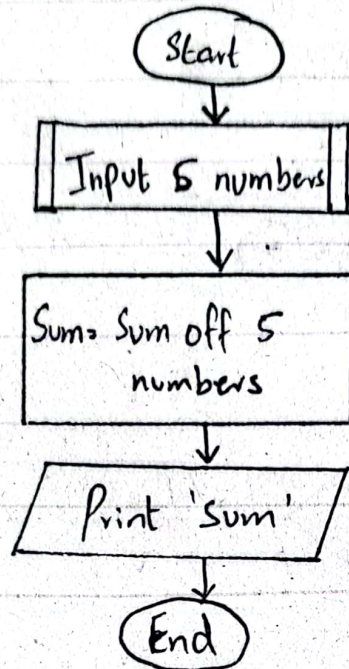 Start
Input 5 numbers
Sum= Sum off 5
numbers
Print 'Sum'
End